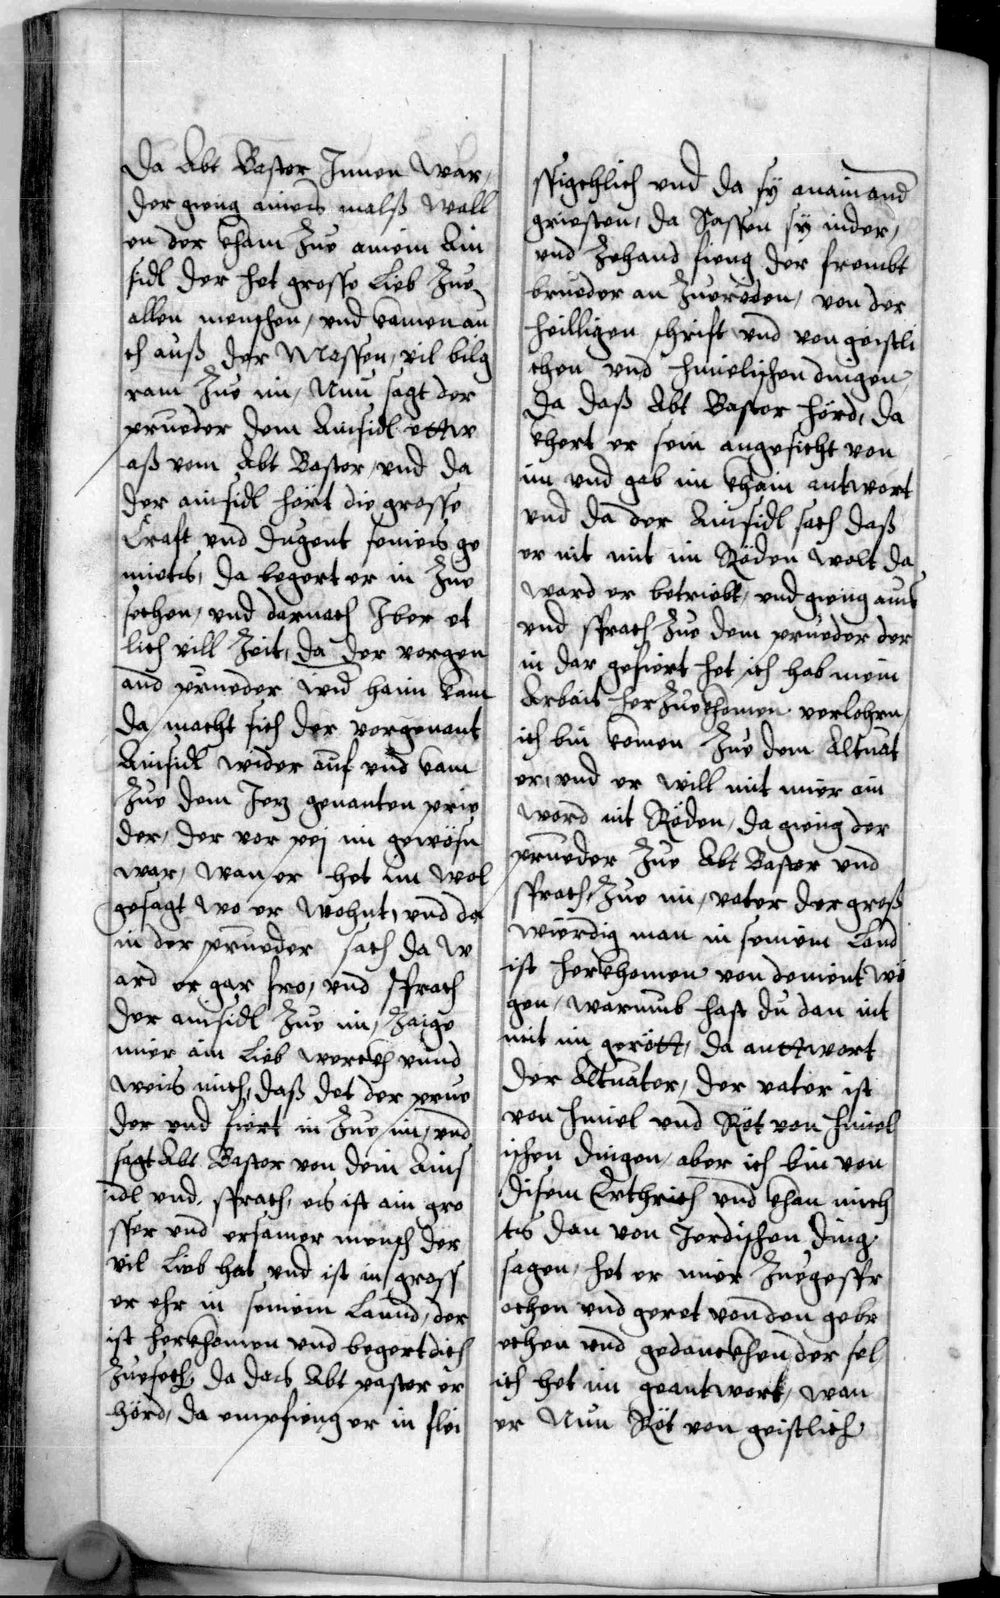 Da Abt Pastor Innen war,
der gieng ainers malß wall
en der kham Zue ainem Ain
sidl der het grosse Lieb Zue
allen menschen, vnd kamen au
ch auß der Massen, vil bilg
ram Zue im, Nun sagt der
prueder dem Ainsidl ettw
aß vom Abt Pastor, vnd da
der ainsidl hört die grosse
Craft vnd Dugent seineis ge
mietes, da begert er in Zue
sechen, vnd darnach Iber et
lich vill Zeit, da der vorgen
and prueder wid haim kam
da macht sich der vorgenant
Ainsidl wider auf vnd kam
Zue dem Jez genanten prie
der, der vor pej im gewösn
war, wan er het im wol
gesagt wo er wohnt, vnd da
in der prueder sach da w
ard er gar fro, vnd sprach
der ainsidl Zue im, Zaige
mier ain Lieb werckh vnnd
weis mich, daß det der prue
der vnd fiert in Zue im, vnd
sagt Abt Pastor von dem Ains
idl vnd sprach, eis ist ain gro
sser vnd ersamer mensch der
vil Lieb hat vnd ist in gross
er ehr in seinem Lannd, der
ist herkhomen vnd begert dich
Zuesech, da das Abt pastor er
hörd, da empfieng er in flei
ssigchlich vnd da sÿ anainand
griesten, da Sassen sÿ nider,
vnd Zehand fieng der frembt
brueder an Zuereden, von der
heilligen schrift vnd von geistli
chen vnd himelischen dingen,
Da daß Abt Pastor hörd, da
khert er sein angesicht von
im vnd gab im khain antwort
vnd da der Ainsidl sach daß
er nit mit im Röden wolt da
ward er betriebt, vnd gieng aus
vnd sprach Zue dem prueder der
in dar gefiert het ich hab mein
Arbait her Zuekhomen verlohrn,
ich bin komen Zue dem Altuat
er, vnd er will mit mier ain
word nit Röden, da gieng der
prueder Zue Abt Pastor vnd
sprach, Zue im, vater der groß
wierdig man in seinem Land
ist herkhomen von deinent wö
gen, warumb hast du dan nit
mit im gerött, da anttwort
der Altuater, der vater ist
von himel vnd Röt von himel
ischen dingen, aber ich bin von
disem Erthrich vnd khan nich
ts dan von Jerdischen ding
sagen, het er mier Zuegespr
ochen vnd geret von den gebr
echen vnd gedanckhen der sel
ich het im geantwort, wan
er Nun Röt von geistlich